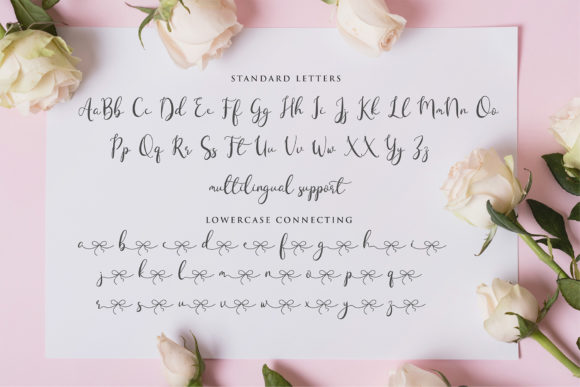 STANDARD LETTERS
AaBb Cc Dd Ee Ff Gg Hh Ii Jj Kk Ll MmNn Oo
Pp Qq Rr Ss Tt Uu Vv Ww XX Yy Zz
multilingual support
LOWERCASE CONNECTING
a b c d e f g h i
j k l m n o p q
r s u v w x y z